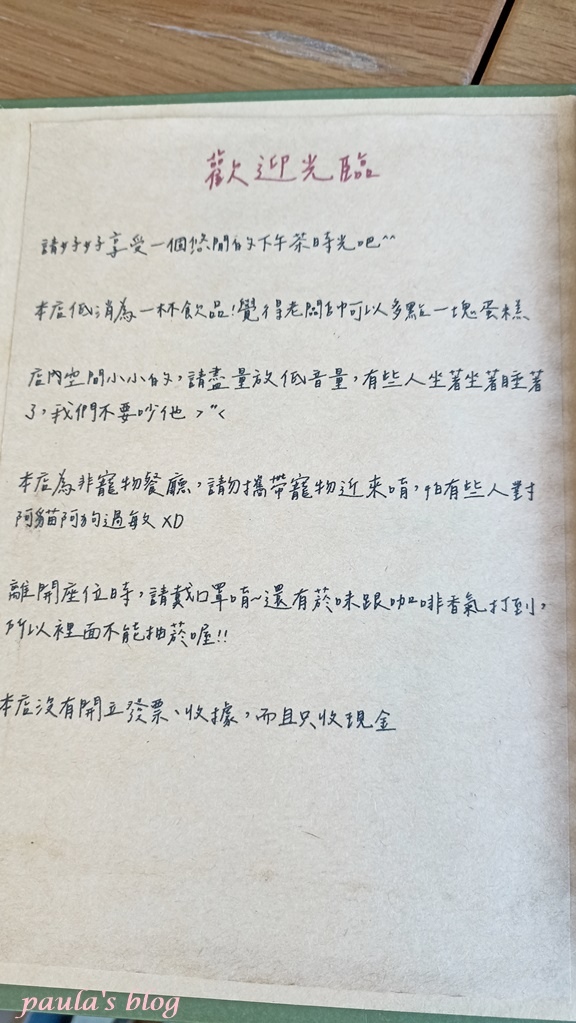 歡迎光臨
請好好享受一個悠閒的下午茶時光吧^^
本店低消為一杯飲品!覺得老闆帥可以多點一塊蛋糕
店內空間小小的,請盡量放低音量,有些人坐著坐著睡著
了,我們不要吵他 >"<
本店為非寵物餐廳,請勿攜帶寵物近來唷,怕有些人對
阿貓阿狗過敏 XD
離開座位時,請戴口罩唷~還有菸味跟咖啡香氣打到,
所以裡面不能抽菸喔!!
本店沒有開立發票、收據,而且只收現金
paula's blog